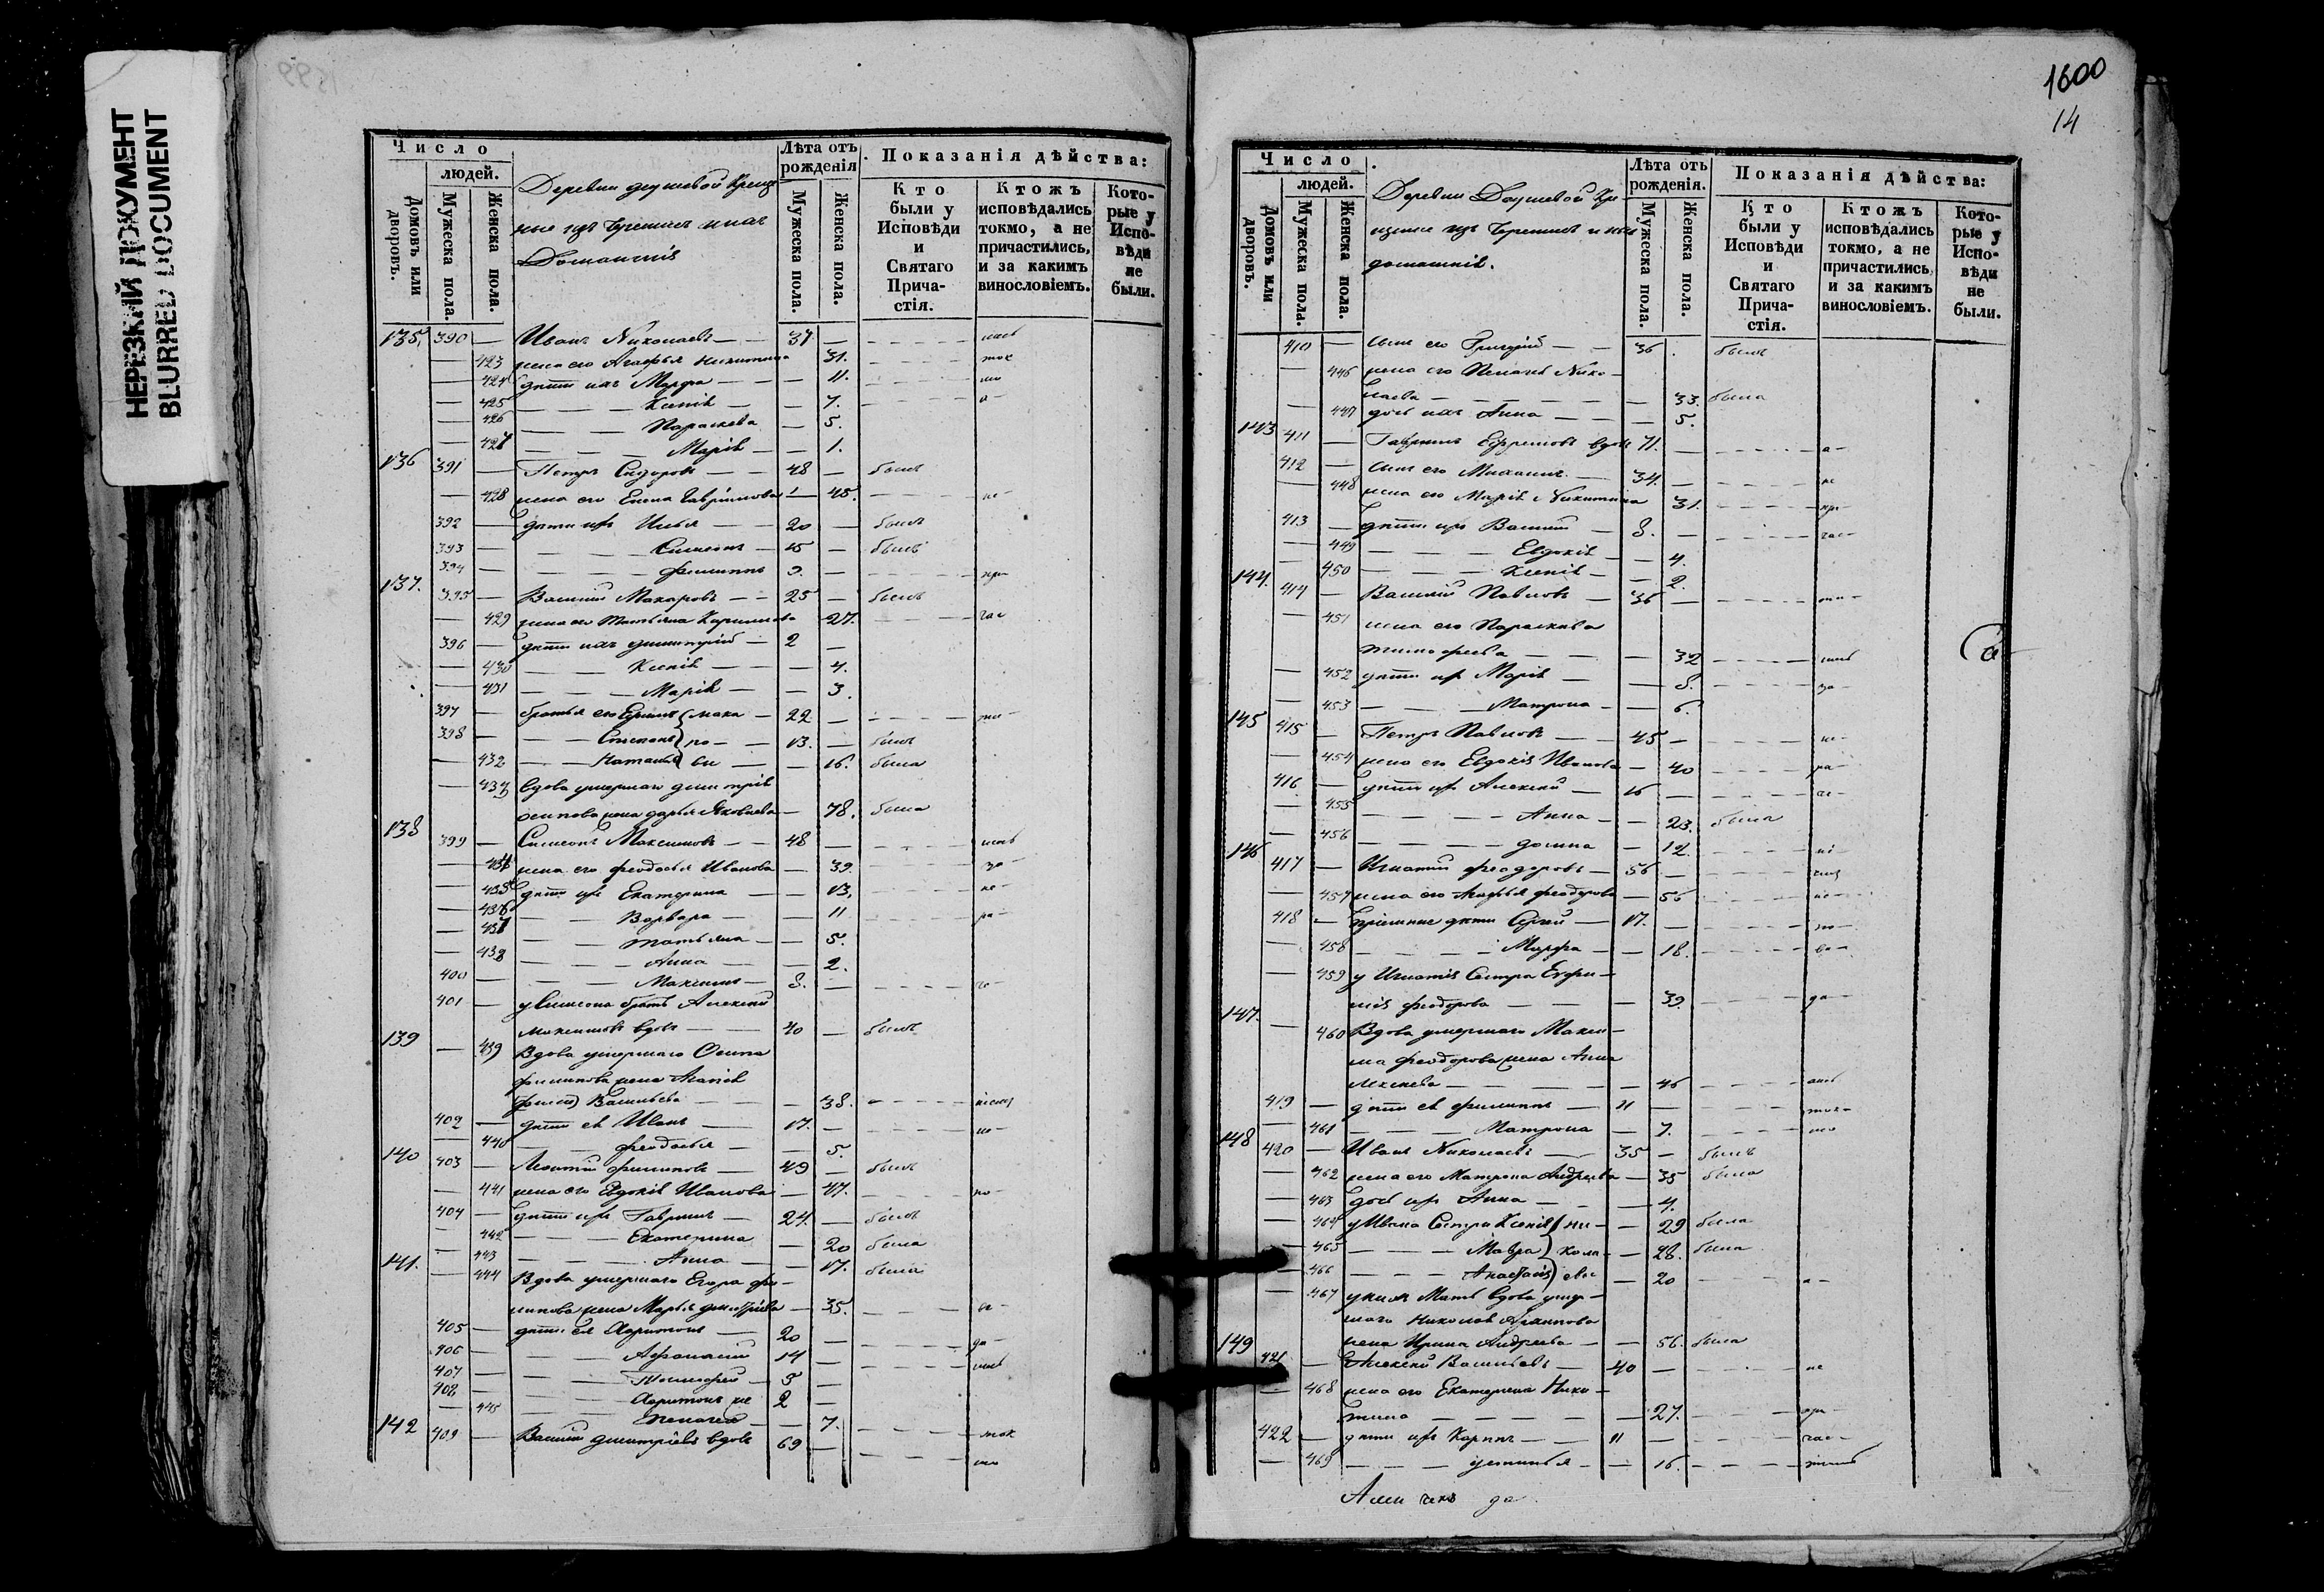 НЕРЕЗКИЙ ДОКУМЕНТ
BLURRED DOCUMENT
Число
людей.
Домовъ или дворовъ.
Мужеска пола.
Женска пола.
Деревни
Домашнiя
Лѣта отъ рожденiя
Мужеска пола.
Женска пола.
Показанiя дѣйства:
Кто были у Исповѣди и Святаго Причастiя.
Ктожъ исповѣдались токмо, а не причастились, и за какимъ винословiемъ.
Которые у Исповѣди не были.
135. 390 — Иванъ Николаевъ — 37 —
423 жена его Агафья Никитина 31.
424 дѣти ихъ Марфа — 11.
425 Ксенiя — 7.
426 Параскева — 5.
427 Марiя — 1.
136 391 — Петръ Сидоровъ — 48 — былъ
428 жена его Елена Гаврилова — 45.
392 — дѣти ихъ Илья — 20 — былъ
393 — Симеонъ — 15 — былъ
394 — Филиппъ 9. —
137. 395 — Василiй Макаровъ — 25 — былъ
429 жена его Татьяна 27.
396 — дѣти ихъ Димитрiй — 2 —
430 Ксенiя — 4.
431 Марiя — 3.
397 — братья его — 22 —
398 — Степанъ — 13. — былъ
432 Наталья — 16. была
433 Вдова умершаго Димитрiя
Осипова жена Дарья Яковлева — 78. была
138 399 — Симеонъ Максимовъ — 48 —
434 жена его Феодосья Иванова — 39
435 дѣти ихъ Екатерина — 13.
436 Варвара — 11
437 Татьяна — 5.
438 Анна — 2.
400 — Максимъ — 8. —
401 — у Симеона братъ Алексей
Максимовъ вдовъ — 40 — былъ
139 439 Вдова умершаго Осипа
Филипова жена
Васильева — 38.
402 — дѣти ея Иванъ — 17. —
440 Феодосья — 5.
140 403 — Леонтiй Филиповъ — 49 — былъ
441 жена его Евдокiя Иванова — 47.
404 — дѣти ихъ Гаврилъ — 24. — былъ
442 Екатерина — 20 была
443 Анна — 17. была
141. 444 Вдова умершаго Егора Фи-
липова жена Марья Димитрiева — 35.
405 — дѣти ея Харитонъ — 20 —
406 — Афанасiй 14 —
407 — Тимофей — 5 —
408 — Харитонъ 2 —
445 Пелагея — 7.
142 409 — Василiй Димитрiевъ вдовъ 69 —
1600
14
Число
людей.
Домовъ или дворовъ.
Мужеска пола.
Женска пола.
Деревни
домашнiя.
Лѣта отъ рожденiя.
Мужеска пола.
Женска пола.
Показанiя дѣйства:
Кто были у Исповѣди и Святаго Причастiя.
Ктожъ исповѣдались токмо, а не причастились, и за какимъ винословiемъ.
Которые у Исповѣди не были.
410 — сынъ его Григорiй — 36. былъ
446 жена его Пелагея Нико-
лаева — 33. была
447 дочь ихъ Анна — 5.
143 411 — Гаврилъ Ефремовъ вдовъ 71. —
412 — сынъ его Михаилъ — 34. —
448 жена его Марiя Никитина 31.
413 — дѣти ихъ Василiй — 8. —
449 Евдокiя — 4.
450 Ксенiя — 2.
144. 414 — Василiй Павловъ — 36 —
451 жена его Параскева
Тимофеева — 32
452 дѣти ихъ Марiя — 8.
453 Матрона — 6.
145 415 — Петръ Павловъ — 45 —
454 жена его Евдокiя Иванова — 40
416 — дѣти ихъ Алексей — 16 —
455 Анна — 23. была
456 Домна — 12.
146 417 — Игнатiй Феодоровъ — 56 —
457 жена его Агафья Феодорова — 56
418 — прiемные дѣти Сергей — 17. —
458 Марфа — 18.
459 у Игнатiя сестра Евфи-
мiя Феодорова — 39.
147. 460 Вдова умершаго Макси-
ма Феодорова жена Анна
Алексеева — 46
419 — дѣти ея Филиппъ — 11 —
461 Матрона — 7.
148 420 — Иванъ Николаевъ — 35 — былъ
462 жена его Матрона Андреева — 35 была
463 дочь ихъ Анна — 4.
464 у Ивана сестра Ксенiя Ни- — 29 была
465 Мавра кола- — 28. была
466 Анастасiя евы — 20
467 у нихъ мать вдова умер-
шаго Николая Архипова
жена Ирина Андреева — 56. была
149 421 — Алексей Васильевъ — 40 —
468 жена его Екатерина Ники-
тина — 27.
422 — дѣти ихъ Карпъ — 11 —
469 Устинья — 16.